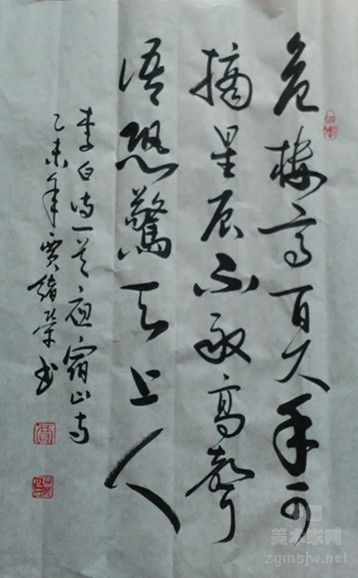 危樓高百尺手可
摘星辰不敢高聲
語恐驚天上人
李白诗一首夜宿山寺
乙未年贾绪荣书
美术家网
zgmsjw.net